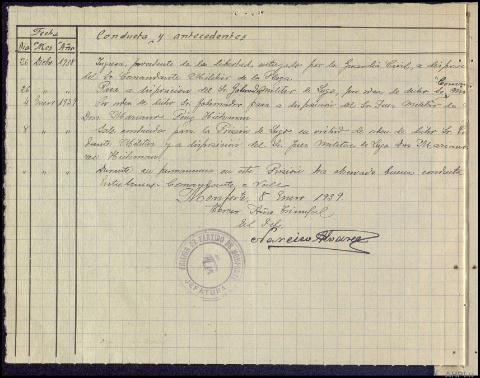 Fecha
Conducta y antecedentes
Dia Mes Año
26 Dicbre 1938 Ingresa procedente de la libertad, entregado por la Guardia Civil, a disposición
del Sr. Comandante Militar de la Plaza.
26 " " Pasa a disposición del Sr. Gobernador Militar de Lugo, por orden de dicho Sr.
4 Enero 1939 Por orden de dicho Sr. Gobernador pasa a disposición del Sr. Juez Militar de
Don Mariano Puig
8 " " Sale conducido para la Prisión de Lugo en virtud de orden de dicho Sr.
Militar y a disposición del Sr. Juez militar de Lugo Don Mariano
" " " Durante su permanencia en esta Prisión ha observado buena conducta
Monforte, 8 Enero 1939.
Tercer Año Triunfal
El Jefe,
Narciso Alvarez
PRISION DE PARTIDO DE MONFORTE
JEFATURA